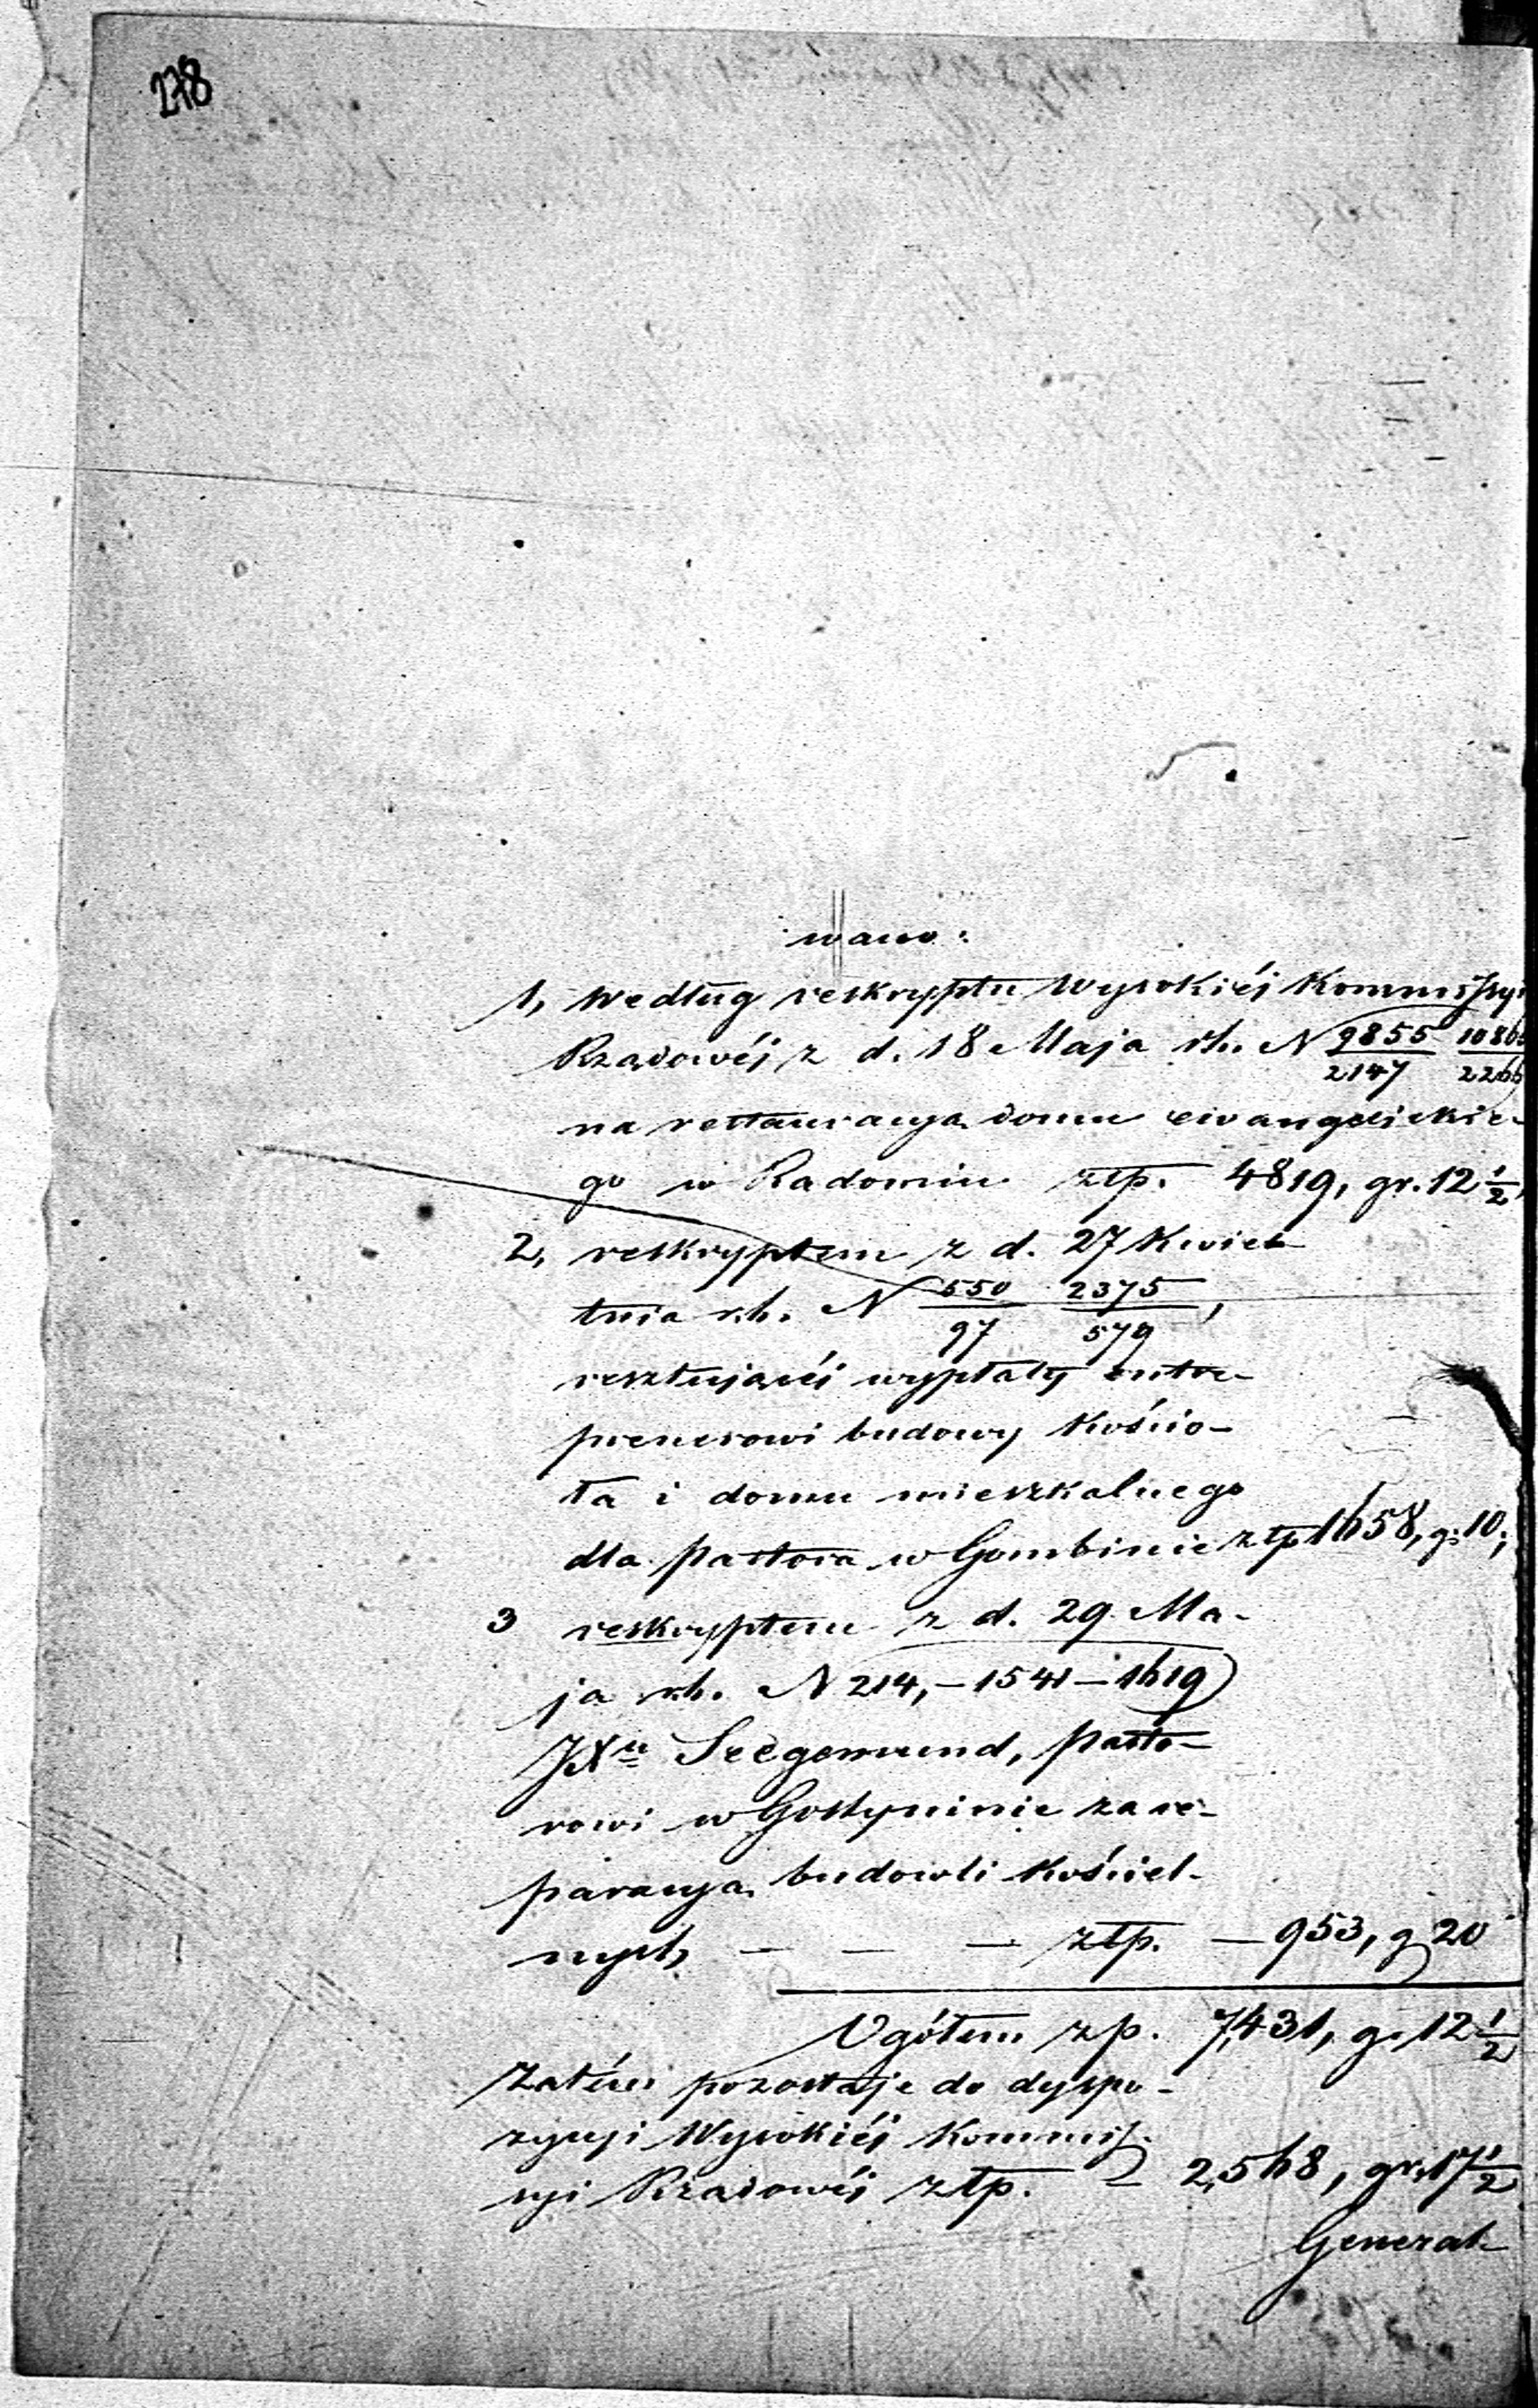 278
wano:
1, według reskryptu Wysokiéj Kommissyi
Rządowéj z d. 18 Maja r.b. N 9855/2147 1086/226
na restauracyą domu ewangelickie-
go w Radomiu złp. 4819, gr. 12 1/2,
2, reskryptem z d. 27 Kwiet-
tnia r.b. N 550/97 2375/579,
resztującéj wypłaty entre-
prenerowi budowy kościo-
ła i domu mieszkalnego
dla pastora w Gombinie złp 1658, g. 10,
3 reskryptem z d. 29 Ma-
ja r.b. N 214,-1541-1619
JXu Seegemund, pasto-
rowi w Gostyninie za re-
paracyą budowli kościel-
nych — — — złp. — 953, g 20
Ogółem zp. 7,431, g. 12 1/2
Zatém pozostaje do dyspo-
zycyi Wysokiéj Kommis-
syi Rządowéj złp. — 2,568, gr. 17 1/2
General-